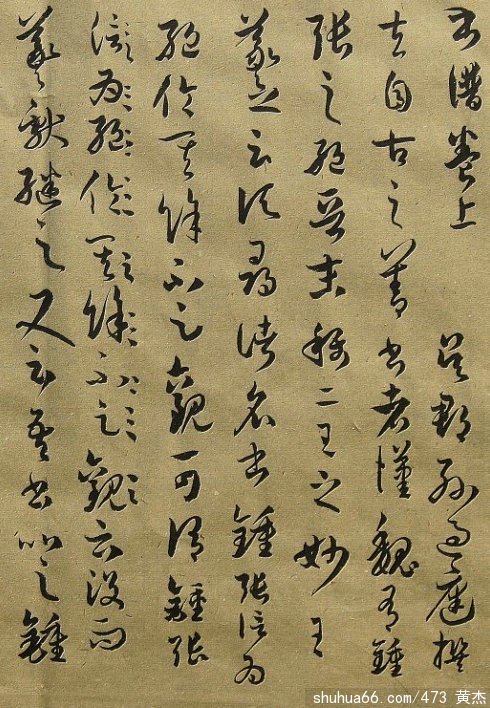 書譜卷上 吳郡孫過庭撰
夫自古之善書者漢魏有鍾
張之絕晉末稱二王之妙王
羲之云頃尋諸名書鍾張信為
絕倫其餘不足觀可謂鍾張
信為絕倫其餘不足觀云沒而
羲獻繼之又云吾書比之鍾
shuhua66.com/473 黄杰